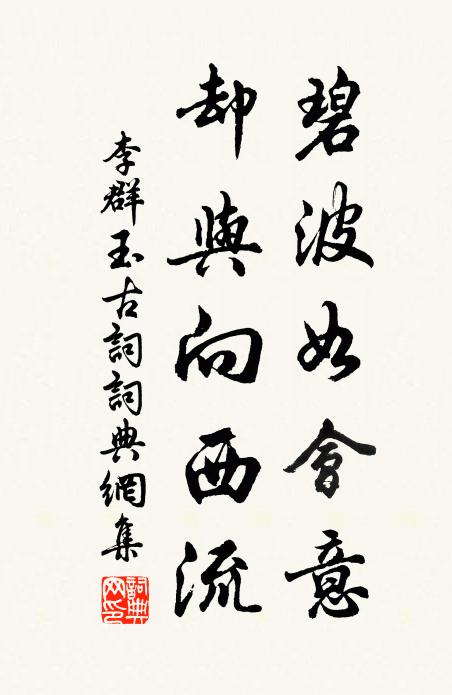 碧波如會意
却與向西流
李群玉古詞詞典網集
詞典
网印